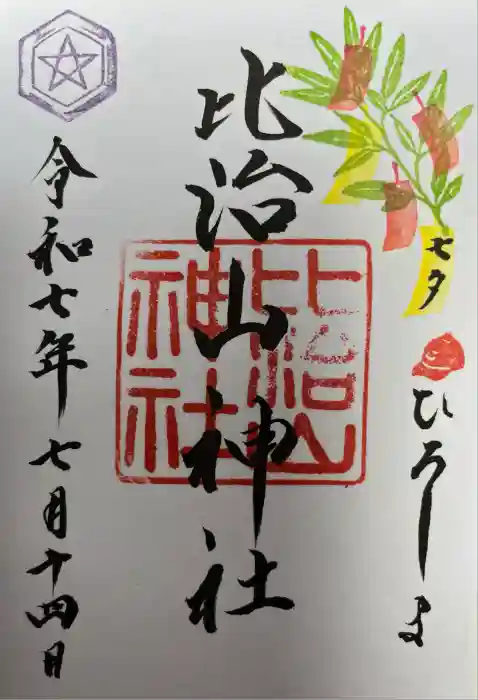 七夕
ひろしま
比治山神社
比治山神社
令和七年七月十四日